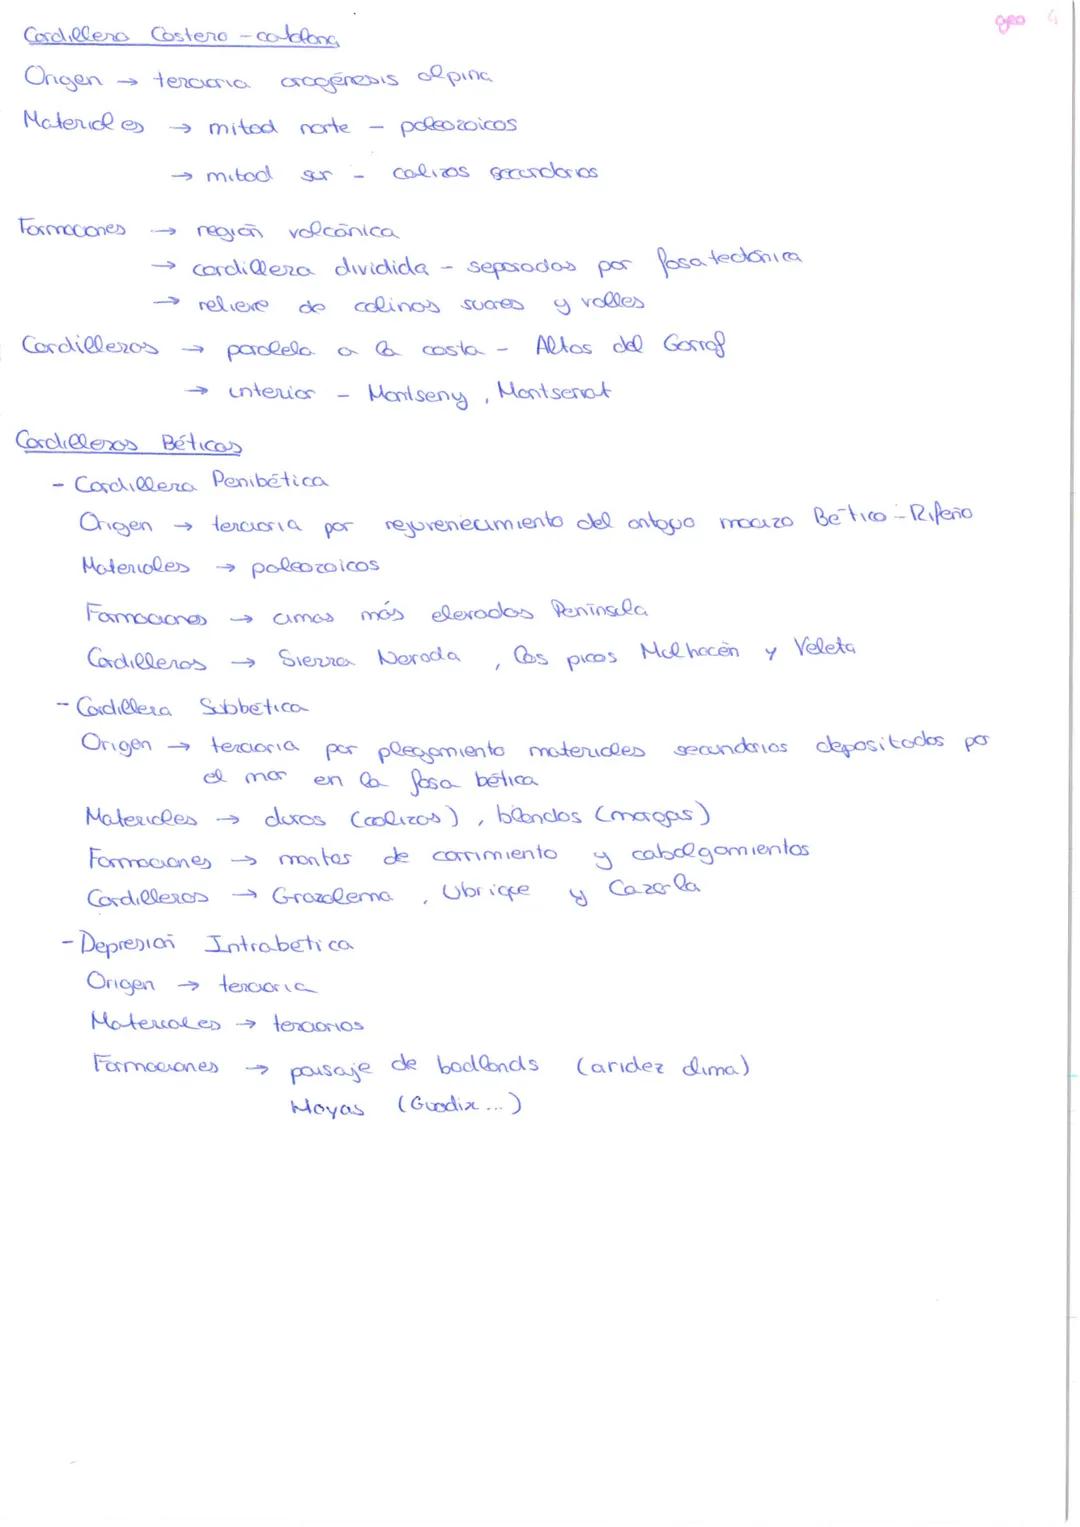 geo 4
Cordillera Costero - catalana
Origen → terciaria orogénesis alpina
Materiales → mitad norte - paleozoicos
→ mitad sur - calizas secundarias
Formaciones → región volcánica
→ cordillera dividida - separadas por fosa tectónica
→ relieve de colinas suaves y valles
Cordilleras → paralela a la costa - Altos del Garraf
→ interior - Montseny, Montserrat
Cordilleras Béticas
- Cordillera Penibética
Origen → terciaria por rejuvenecimiento del antiguo macizo Bético - Rifeño
Materiales → paleozoicos
Formaciones → cimas más elevadas Península
Cordilleras → Sierra Nevada, los picos Mulhacén y Veleta
- Cordillera Subbética
Origen → terciaria por plegamiento materiales secundarios depositados por
el mar en la fosa bética
Materiales → duros (calizas), blandos (margas)
Formaciones → mantos de corrimiento y cabalgamientos
Cordilleras → Grazalema, Ubrique y Cazorla
- Depresión Intrabética
Origen → terciaria
Materiales → terciarios
Formaciones → paisaje de badlands (aridez clima)
Hoyas (Guadix ...)